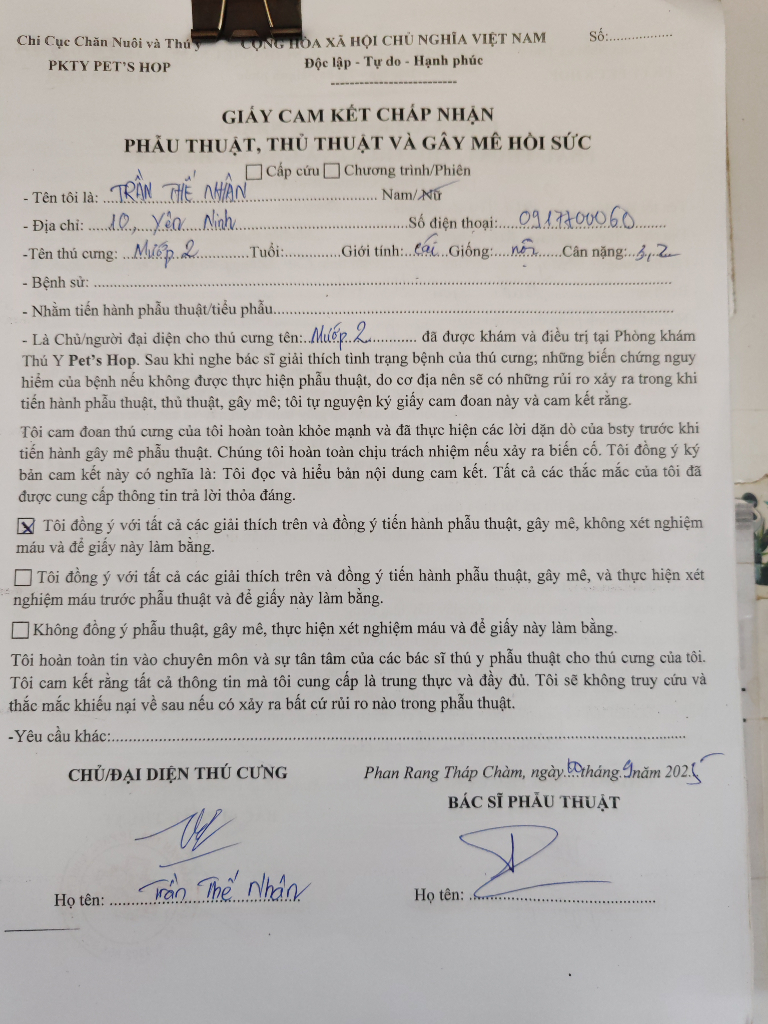 Chi Cục Chăn Nuôi và Thú y CỘNG HÒA XÃ HỘI CHỦ NGHĨA VIỆT NAM Số:.................
PKTY PET'S HOP Độc lập - Tự do - Hạnh phúc
GIẤY CAM KẾT CHẤP NHẬN
PHẪU THUẬT, THỦ THUẬT VÀ GÂY MÊ HỒI SỨC
☐ Cấp cứu ☐ Chương trình/Phiên
- Tên tôi là: TRẦN THẾ NHÂN Nam/Nữ
- Địa chỉ: 10, Yên Ninh Số điện thoại: 0917700060
-Tên thú cưng: Mướp 2 Tuổi:..............Giới tính: cái Giống: Cân nặng: 3,2
- Bệnh sử: ....................
- Nhằm tiến hành phẫu thuật/tiểu phẫu....................
- Là Chủ/người đại diện cho thú cưng tên: Mướp 2 đã được khám và điều trị tại Phòng khám
Thú Y Pet's Hop. Sau khi nghe bác sĩ giải thích tình trạng bệnh của thú cưng; những biến chứng nguy
hiểm của bệnh nếu không được thực hiện phẫu thuật, do cơ địa nên sẽ có những rủi ro xảy ra trong khi
tiến hành phẫu thuật, thủ thuật, gây mê; tôi tự nguyện ký giấy cam đoan này và cam kết rằng.
Tôi cam đoan thú cưng của tôi hoàn toàn khỏe mạnh và đã thực hiện các lời dặn dò của bsty trước khi
tiến hành gây mê phẫu thuật. Chúng tôi hoàn toàn chịu trách nhiệm nếu xảy ra biến cố. Tôi đồng ý ký
bản cam kết này có nghĩa là: Tôi đọc và hiểu bản nội dung cam kết. Tất cả các thắc mắc của tôi đã
được cung cấp thông tin trả lời thỏa đáng.
☒ Tôi đồng ý với tất cả các giải thích trên và đồng ý tiến hành phẫu thuật, gây mê, không xét nghiệm
máu và để giấy này làm bằng.
☐ Tôi đồng ý với tất cả các giải thích trên và đồng ý tiến hành phẫu thuật, gây mê, và thực hiện xét
nghiệm máu trước phẫu thuật và để giấy này làm bằng.
☐ Không đồng ý phẫu thuật, gây mê, thực hiện xét nghiệm máu và để giấy này làm bằng.
Tôi hoàn toàn tin vào chuyên môn và sự tân tâm của các bác sĩ thú y phẫu thuật cho thú cưng của tôi.
Tôi cam kết rằng tất cả thông tin mà tôi cung cấp là trung thực và đầy đủ. Tôi sẽ không truy cứu và
thắc mắc khiếu nại về sau nếu có xảy ra bất cứ rủi ro nào trong phẫu thuật.
-Yêu cầu khác:....................
CHỦ/ĐẠI DIỆN THÚ CƯNG Phan Rang Tháp Chàm, ngày tháng 9 năm 2025
BÁC SĨ PHẪU THUẬT
Họ tên: Trần Thế Nhân Họ tên: ....................